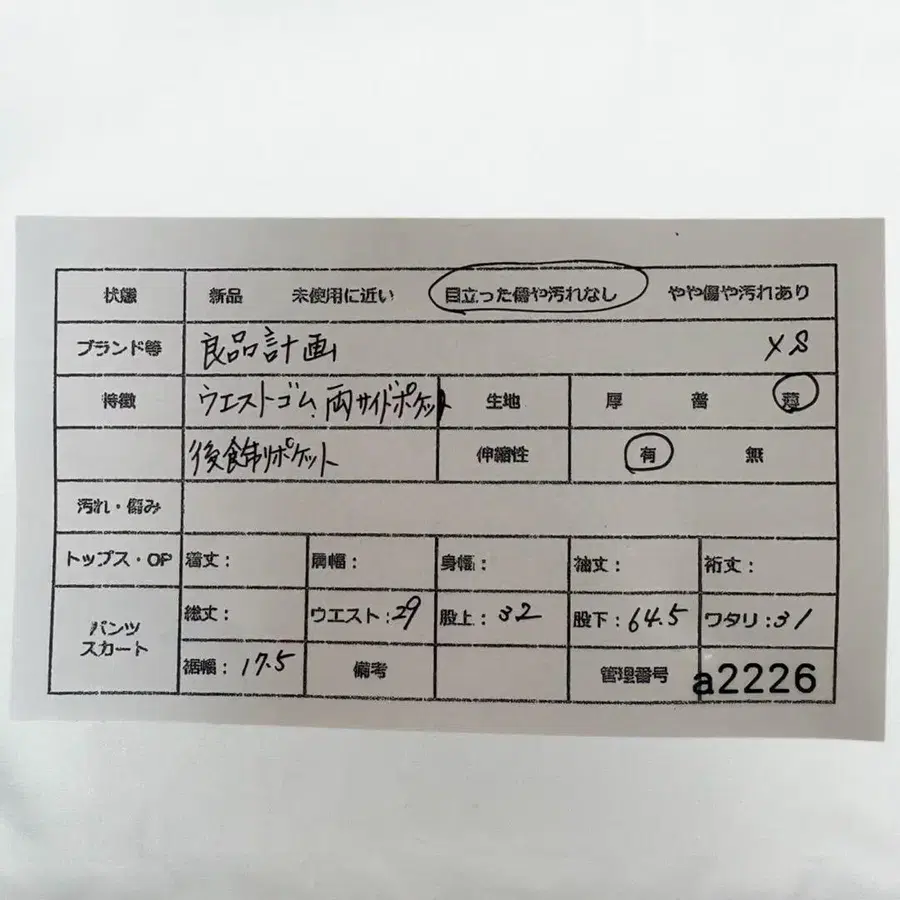 状態 新品 未使用に近い 目立った傷や汚れなし やや傷や汚れあり
ブランド等 良品計画 XS
特徴 ウエストゴム、両サイドポケット 生地 厚 普 薄
後飾りポケット 伸縮性 有 無
汚れ・傷み
トップス・OP 着丈: 肩幅: 身幅: 袖丈: 裄丈:
パンツ スカート 総丈: ウエスト:29 股上:32 股下:64.5 ワタリ:31
裾幅:17.5 備考 管理番号 a2226